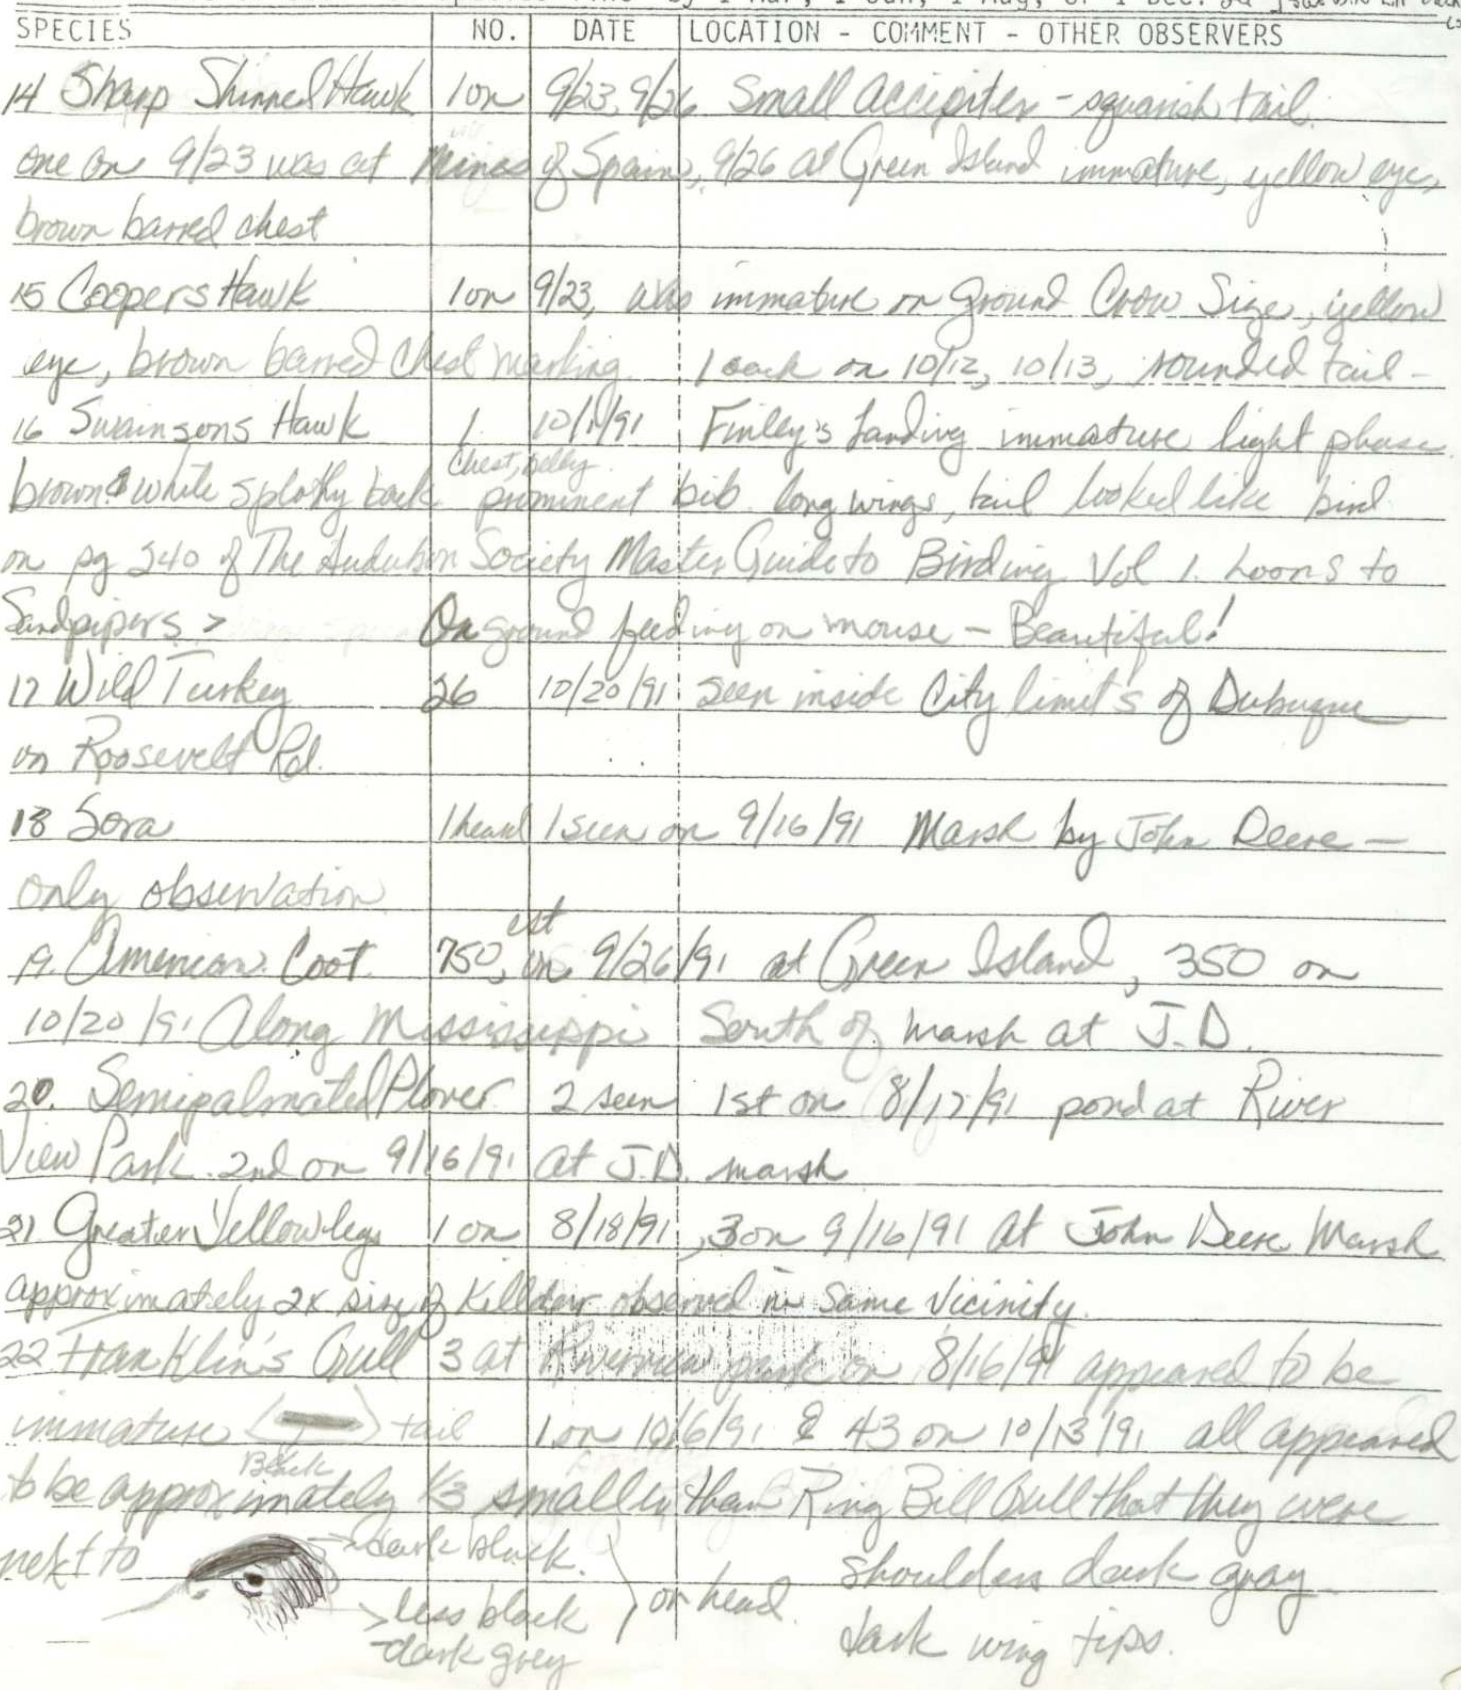 by 1 Mar, 1 Jun, 1 Aug, or 1 Dec.
SPECIES NO. DATE LOCATION - COMMENT - OTHER OBSERVERS
14 Sharp Shinned Hawk 1 on 9/23, 9/26 Small accipiter - squarish tail.
one on 9/23 was at Mines of Spain, 9/26 at Green Island immature, yellow eye,
brown barred chest
15 Coopers Hawk 1 on 9/23, was immature on ground Crow Size, yellow
eye, brown barred chest marking. 1 each on 10/12, 10/13, rounded tail -
16 Swainsons Hawk 1. 10/1/91 Finley's Landing immature light phase.
chest, belly
brown & white splothy back prominent bib. long wings, tail looked like bird
on pg 240 of The Audubon Society Master Guide to Birding Vol 1. Loons to
Sandpipers > On ground feeding on mouse - Beautiful!
17 Wild Turkey 26 10/20/91 seen inside City limits of Dubuque
on Roosevelt Rd.
18 Sora 1 heard 1 seen on 9/16/91 Marsh by John Deere -
only observation
est
19. American Coot 750, on 9/26/91 at Green Island, 350 on
10/20/91 Along Mississippi South of marsh at J.D.
20. Semipalmated Plover 2 seen 1st on 8/17/91 pond at River
View Park. 2nd on 9/16/91 at J.D. marsh
21 Greater Yellowlegs 1 on 8/18/91, 3 on 9/16/91 at John Deere Marsh
approximately 2x size of Killdeer observed in same vicinity.
22 Franklin's Gull 3 at Riverview park on 8/16/91 appeared to be
immature tail 1 on 10/6/91 & 43 on 10/13/91 all appeared
Black
to be approximately 1/3 smaller than Ring Bill Gull that they were
next to dark black. shoulders dark gray
less black on head.
dark grey dark wing tips.